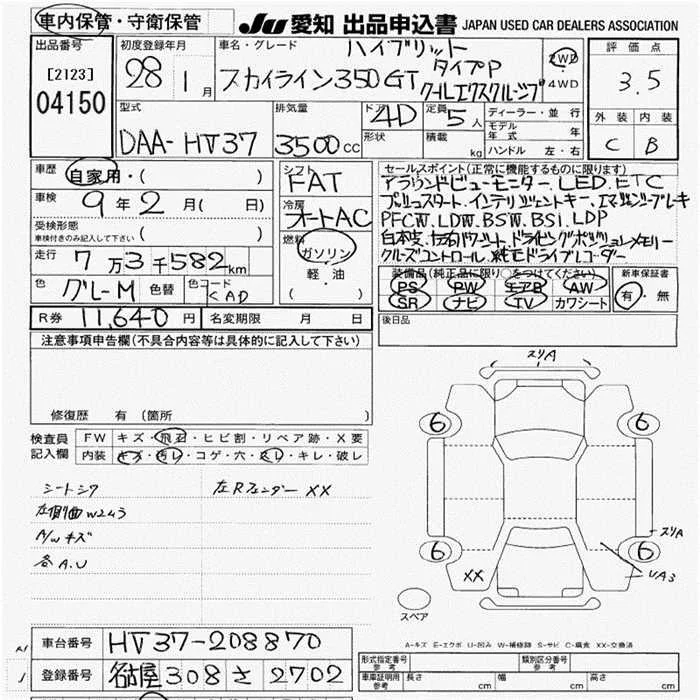 車内保管・守衛保管
JU 愛知 出品申込書 JAPAN USED CAR DEALERS ASSOCIATION
出品番号
[2123]
04150
初度登録年月
28年 1月
車名・グレード
ハイブリット
スカイライン350GT タイプP
クールエクスクルーシブ
2WD
・
4WD
評価点
3.5
外装 内装
C B
型式
DAA-HV37
排気量
3500cc
ドア 4D
形状
定員 5人
積載 kg
ディーラー・並行
モデル年式 年
ハンドル 左・右
車歴 自家用・( )
車検 9年 2月 ( 日)
受検形態
車検付きのみ記入して下さい ( )
走行 7万3千582km
色 グレーM 色替 色コード <CAD
シフト FAT
冷房 オートAC
燃料 ガソリン
・
軽・油
( )
セールスポイント(正常に機能するものに限る)
アラウンドビューモニター、LED、ETC
プッシュスタート、インテリジェントキー、エマージンシーブレーキ
PFCW、LDW、BSW、BSI、LDP
白本支、左右パワーシート、ドライビングポジションメモリー
クルーズコントロール、純正ドライブレコーダー
装備品(純正品に限り○をつけてください)
PS PW エアB AW
SR ナビ TV カワシート
新車保証書
有・無
R券 11,640円 名変期限 月 日
後日品
注意事項申告欄(不具合内容等は具体的に記入して下さい)
修復歴 有 (箇所 )
検査員記入欄
FW キズ・飛石・ヒビ割・リペア跡・X要
内装 キズ・汚レ・コゲ・穴・スレ・キレ・破レ
シートシワ
左側面W2あう
A/wキズ
各A.U
左Rフェンダー XX
スリA
6
6
6
6
スリA
XX
UA3
スペア
A-キズ E-エクボ U-凹み W-補修跡 S-サビ C-腐食 XX-交換済
車台番号 HV37-208870
登録番号 名古屋308さ2702
形式指定番号 参考
類別区分番号 参考
車庫証明用 参考 長さ cm 幅 cm 高さ cm